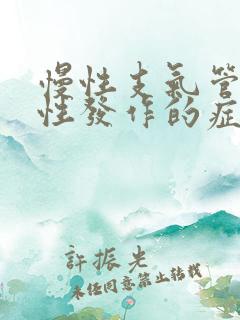 慢性支氣管
性發作的症
許振光
未經同意禁止轉載